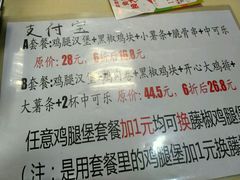 支付宝
A套餐:鸡腿汉堡+黑椒鸡块+小薯条+脆骨串+中可乐
原价:28元,6折后16.8元
B套餐:鸡腿汉堡+黑椒鸡块+开心大鸡排+
大薯条+2杯中可乐 原价:44.5元,6折后26.8元
任意鸡腿堡套餐加1元均可换藤椒鸡腿
(注:是用套餐里的鸡腿堡加1元换藤